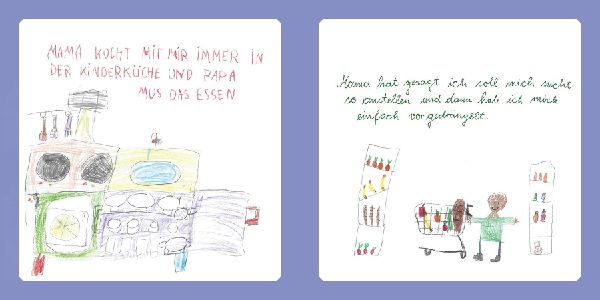 MAMA KOCHT MIT MIR IMMER IN
DER KINDERKÜCHE UND PAPA
MUS DAS ESSEN
Mama hat gesagt ich soll mich nicht
so anstellen und dann hab ich mich
einfach vorgedrängelt.